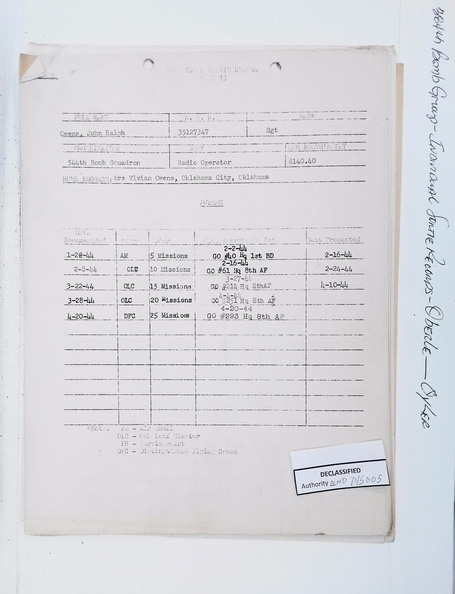 384th Bomb Group - Individual Sortie Records - Oberle — Oyler
Owens, John Ralph 35127347 Sgt
544th Bomb Squadron Radio Operator $140.40
HOME ADDRESS: Mrs Vivian Owens, Oklahoma City, Oklahoma
Recommended Date Presented
2-2-44
1-28-44 AM 5 Missions GO #40 Hq 1st BD 2-16-44
2-16-44
2-8-44 CLU 10 Missions GO #61 Hq 8th AF 2-24-44
3-27-44
3-22-44 OLC 15 Missions GO #214 Hq 8thAF 4-10-44
4-4-44
3-28-44 OLC 20 Missions GO Hq 8th AF
4-20-44
4-20-44 DFC 25 Missions GO #293 Hq 8th AF
AM - Air Medal
OLC - Oak Leaf Cluster
PH - Purple Heart
DFC - Distinguished Flying Cross
DECLASSIFIED
Authority NND 745005